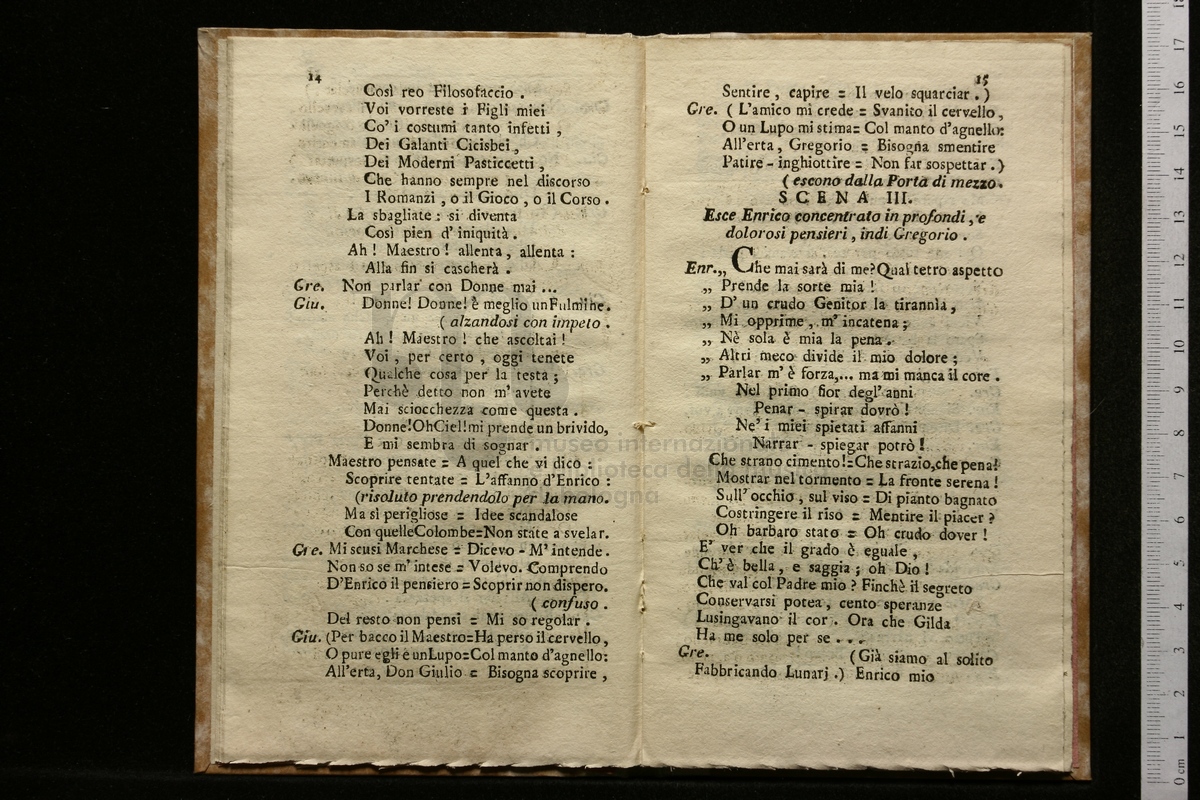 14
Così reo Filosofaccio .
Voi vorreste i Figli miei
Co' i costumi tanto infetti ,
Dei Galanti Cicisbei ,
Dei Moderni Pasticcetti ,
Che hanno sempre nel discorso
I Romanzi , o il Gioco , o il Corso .
La sbagliate : si diventa
Così pien d' iniquità .
Ah ! Maestro ! allenta , allenta :
Alla fin si cascherà .
Gre. Non parlar con Donne mai ...
Giu. Donne! Donne! è meglio un Fulmine.
( alzandosi con impeto .
Ah ! Maestro ! che ascoltai !
Voi , per certo , oggi tenete
Qualche cosa per la testa ;
Perchè detto non m' avete
Mai sciocchezza come questa .
Donne! Oh Ciel! mi prende un brivido,
E mi sembra di sognar .
Maestro pensate = A quel che vi dico :
Scoprire tentate = L'affanno d'Enrico :
(risoluto prendendolo per la mano.
Ma sì perigliose = Idee scandalose
Con quelle Colombe=Non state a svelar.
Gre. Mi scusi Marchese = Dicevo - M' intende.
Non so se m' intese = Volevo. Comprendo
D'Enrico il pensiero = Scoprir non dispero.
( confuso .
Del resto non pensi = Mi so regolar .
Giu. (Per bacco il Maestro=Ha perso il cervello,
O pure egli è un Lupo=Col manto d'agnello:
All'erta, Don Giulio = Bisogna scoprire ,
15
Sentire , capire = Il velo squarciar .)
Gre. ( L'amico mi crede = Svanito il cervello,
O un Lupo mi stima= Col manto d'agnello:
All'erta, Gregorio = Bisogna smentire
Patire - inghiottire = Non far sospettar .)
( escono dalla Porta di mezzo.
SCENA III.
Esce Enrico concentrato in profondi , e
dolorosi pensieri , indi Gregorio .
Enr.„ Che mai sarà di me? Qual tetro aspetto
„ Prende la sorte mia !
„ D' un crudo Genitor la tirannìa,
„ Mi opprime , m' incatena ;
„ Nè sola è mia la pena .
„ Altri meco divide il mio dolore ;
„ Parlar m' è forza,... ma mi manca il core .
Nel primo fior degl' anni
Penar - spirar dovrò !
Ne' i miei spietati affanni
Narrar - spiegar potrò !
Che strano cimento!=Che strazio, che pena!
Mostrar nel tormento = La fronte serena !
Sull' occhio , sul viso = Di pianto bagnato
Costringere il riso = Mentire il piacer ?
Oh barbaro stato = Oh crudo dover !
E' ver che il grado è eguale ,
Ch' è bella , e saggia ; oh Dio !
Che val col Padre mio ? Finchè il segreto
Conservarsi potea , cento speranze
Lusingavano il cor . Ora che Gilda
Ha me solo per se . . .
Gre. (Già siamo al solito
Fabbricando Lunarj .) Enrico mio